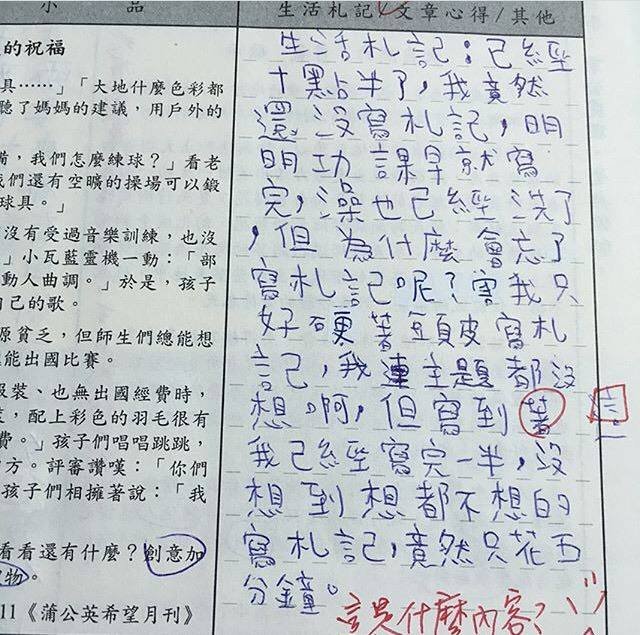 小品
的祝福
具……」「大地什麼色彩都
聽了媽媽的建議，用戶外的
備，我們怎麼練球？」看老
我們還有空曠的操場可以鍛
球具。」
沒有受過音樂訓練，也沒
」小瓦藍靈機一動：「部
動人曲調。」於是，孩子
自己的歌。
源貧乏，但師生們總能想
能出國比賽。
服裝、也無出國經費時，
，配上彩色的羽毛很有
費。」孩子們唱唱跳跳，
方。評審讚嘆：「你們
孩子們相擁著說：「我
看看還有什麼？創意加
物。
11《蒲公英希望月刊》
生活札記／文章心得/其他
生活札記：已經
十點半了，我竟然
還沒寫札記，明
明功課早就寫
完，澡也已經洗了
，但為什麼會忘了
寫札記呢？害我只
好硬著頭皮寫札
記，我連主題都沒
想啊，但寫到著
這
我已經寫完一半，沒
想到想都不想的
寫札記，竟然只花五
分鐘。
這是什麼內容？